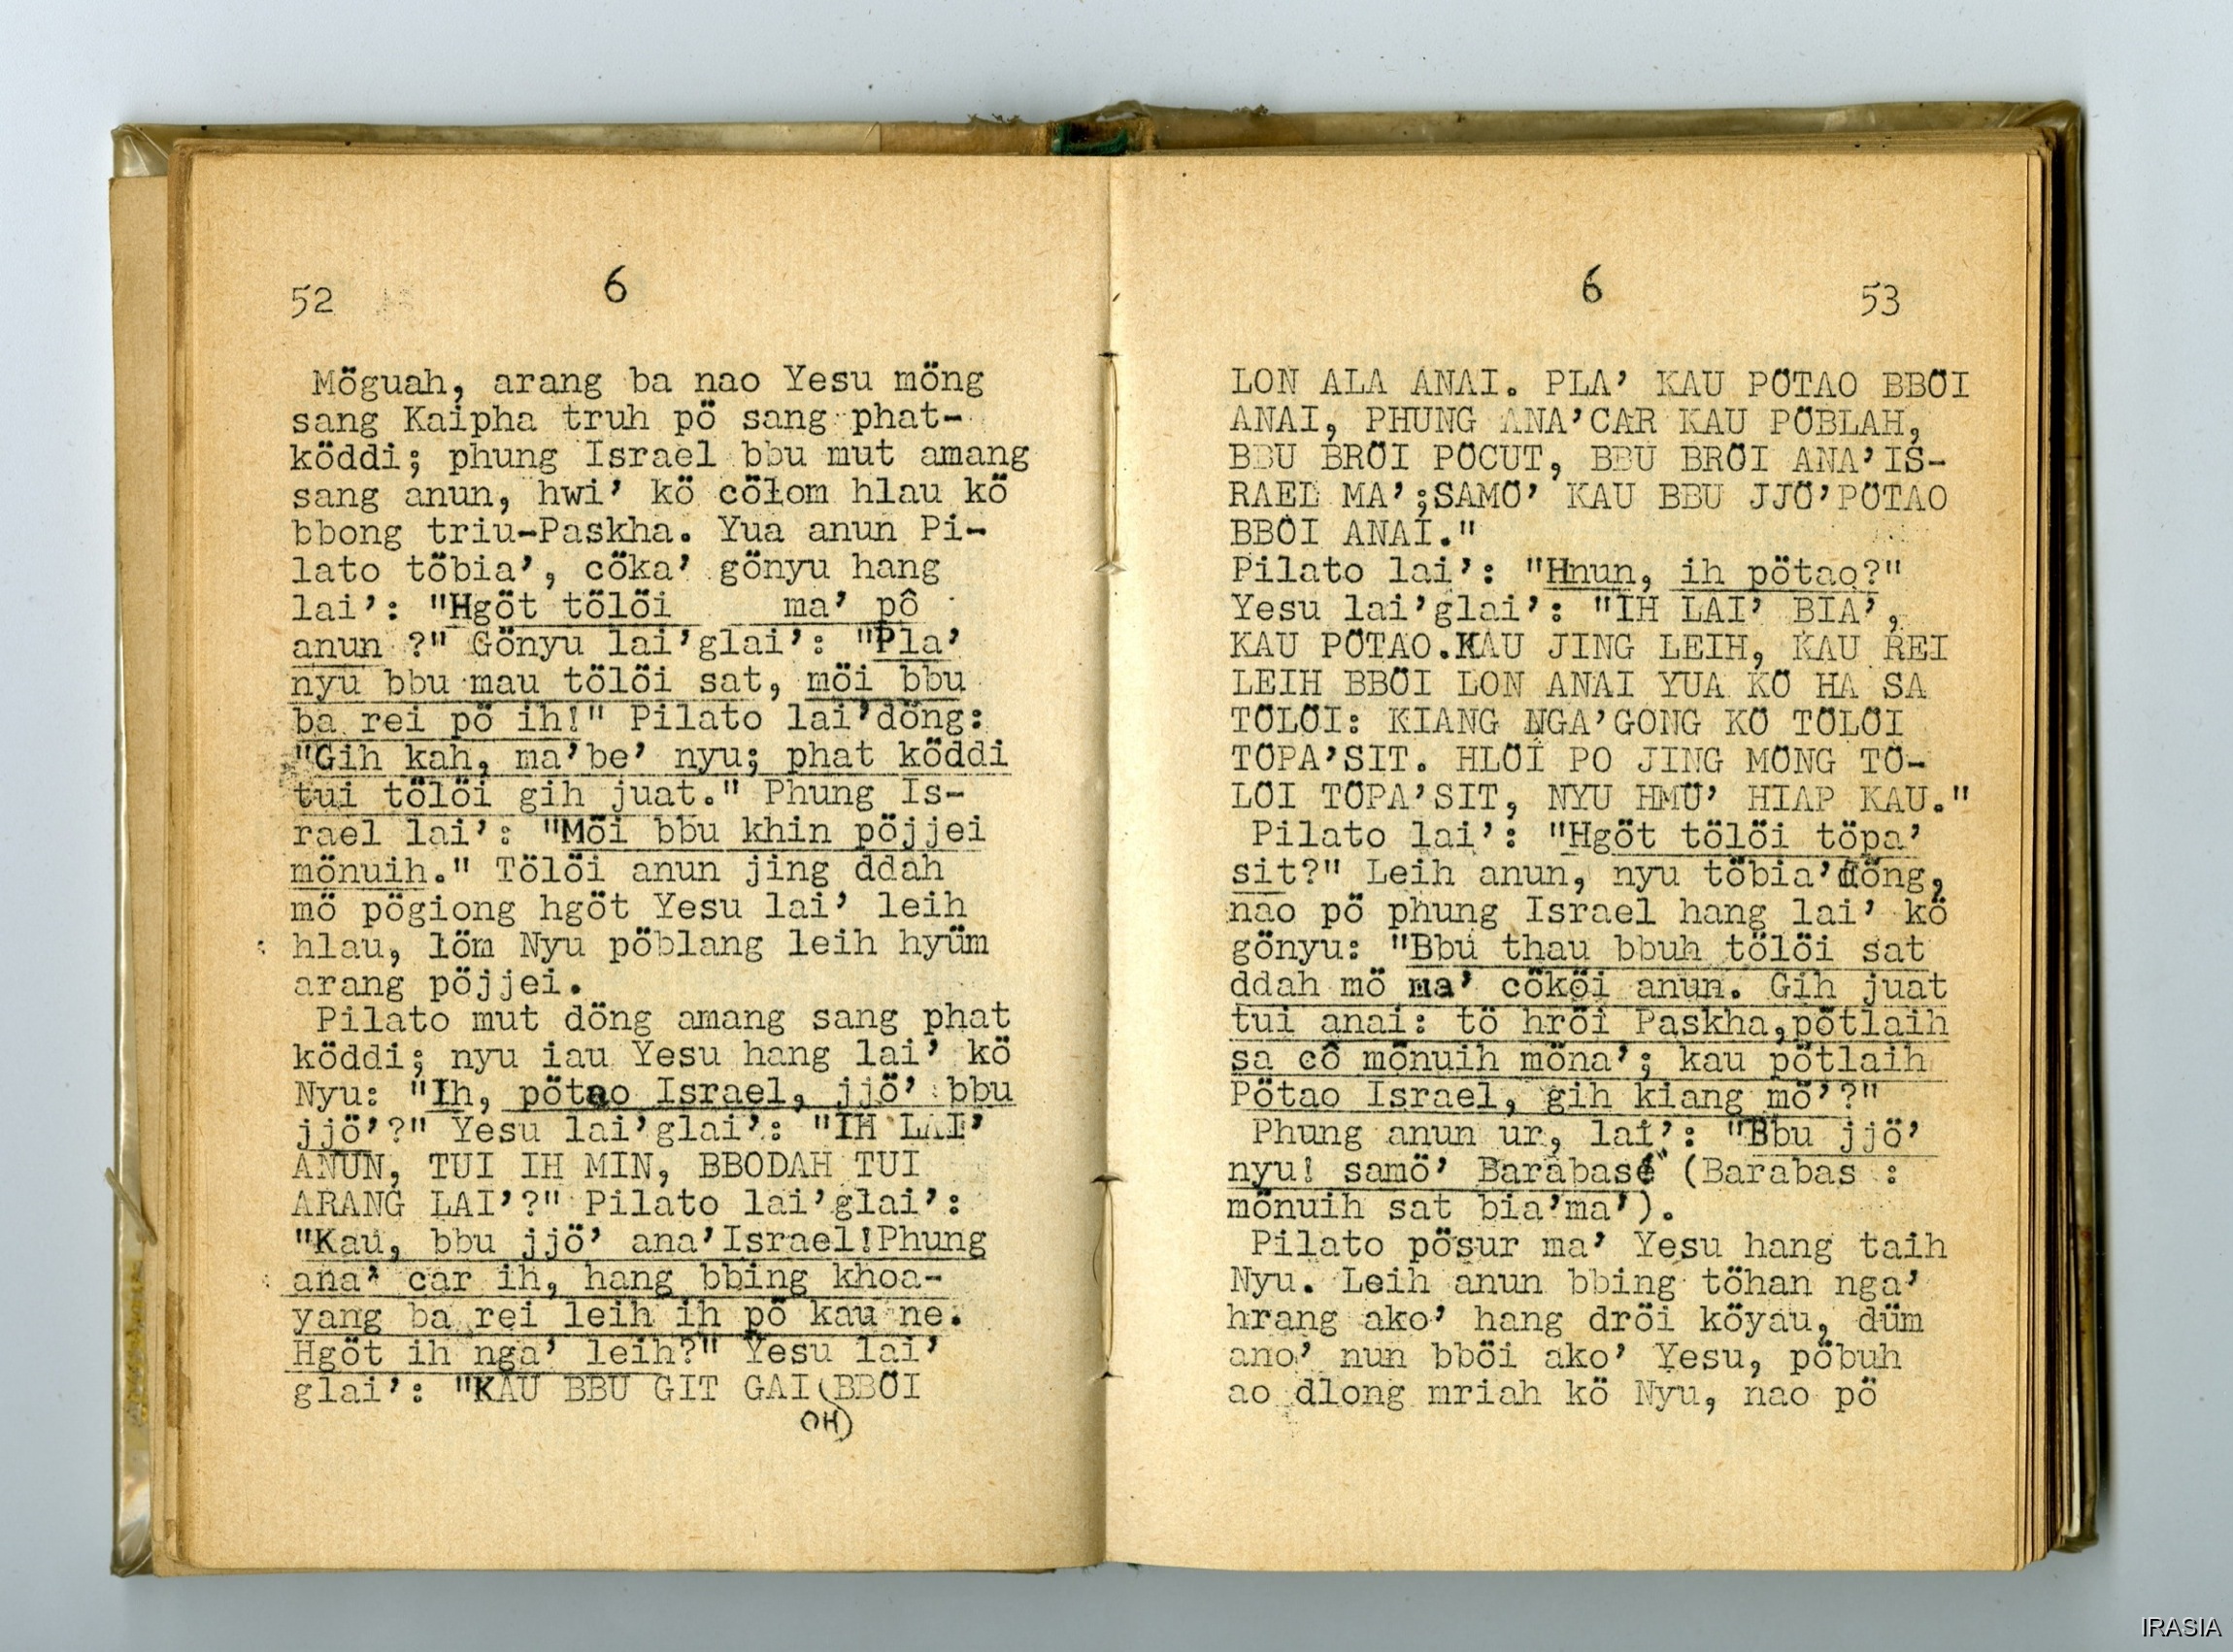 52
6
Möguah, arang ba nao Yesu möng
sang Kaipha truh pö sang phat-
köddi; phung Israel bbu mut amang
sang anun, hwi’ kö cölom hlau kö
bbong triu-Paskha. Yua anun Pi-
lato töbia’, cöka’ gönyu hang
lai’: "Hgöt tölöi ma’ pô
anun ?" Gönyu lai’glai’: "Pla’
nyu bbu mau tölöi sat, möi bbu
ba rei pö ih!" Pilato lai’döng:
"Gih kah, ma’be’ nyu; phat köddi
tui tölöi gih juat." Phung Is-
rael lai’: "Möi bbu khin pöjjei
mönuih." Tölöi anun jing ddah
mö pögiong hgöt Yesu lai’ leih
hlau, löm Nyu pöblang leih hyüm
arang pöjjei.
Pilato mut döng amang sang phat
köddi; nyu iau Yesu hang lai’ kö
Nyu: "Ih, pötao Israel, jjö’ bbu
jjö’?" Yesu lai’glai’: "IH LAI’
ANUN, TUI IH MIN, BBODAH TUI
ARANG LAI’?" Pilato lai’glai’:
"Kau, bbu jjö’ ana’Israel!Phung
ana’ car ih, hang bbing khoa-
yang ba rei leih ih pö kau ne.
Hgöt ih nga’ leih?" Yesu lai’
glai’: "KAU BBU GIT GAI(BBÖI
OH)
6
53
LON ALA ANAI. PLA’ KAU PÖTAO BBÖI
ANAI, PHUNG ANA’CAR KAU PÖBLAH,
BBU BRÖI PÖCUT, BBU BRÖI ANA’IS-
RAEL MA’;SAMÖ’ KAU BBU JJÖ’PÖTAO
BBÖI ANAI."
Pilato lai’: "Hnun, ih pötao?"
Yesu lai’glai’: "IH LAI’ BIA’,
KAU PÖTAO.KAU JING LEIH, KAU REI
LEIH BBÖI LON ANAI YUA KÖ HA SA
TÖLÖI: KIANG NGA’GONG KÖ TÖLÖI
TÖPA’SIT. HLÖI PO JING MÖNG TÖ-
LÖI TÖPA’SIT, NYU HMÜ’ HIAP KAU."
Pilato lai’: "Hgöt tölöi töpa’
sit?" Leih anun, nyu töbia’döng,
nao pö phung Israel hang lai’ kö
gönyu: "Bbu thau bbuh tölöi sat
ddah mö ma’ cököi anun. Gih juat
tui anai: tö hröi Paskha,pötlaih
sa cô mönuih möna’; kau pötlaih
Pötao Israel, gih kiang mö’?"
Phung anun ur, lai’: "Bbu jjö’
nyu! samö’ Barabas" (Barabas :
mönuih sat bia’ma’).
Pilato pösur ma’ Yesu hang taih
Nyu. Leih anun bbing töhan nga’
hrang ako’ hang dröi köyau, düm
ano’ nun bböi ako’ Yesu, pöbuh
ao dlong mriah kö Nyu, nao pö
IRASIA